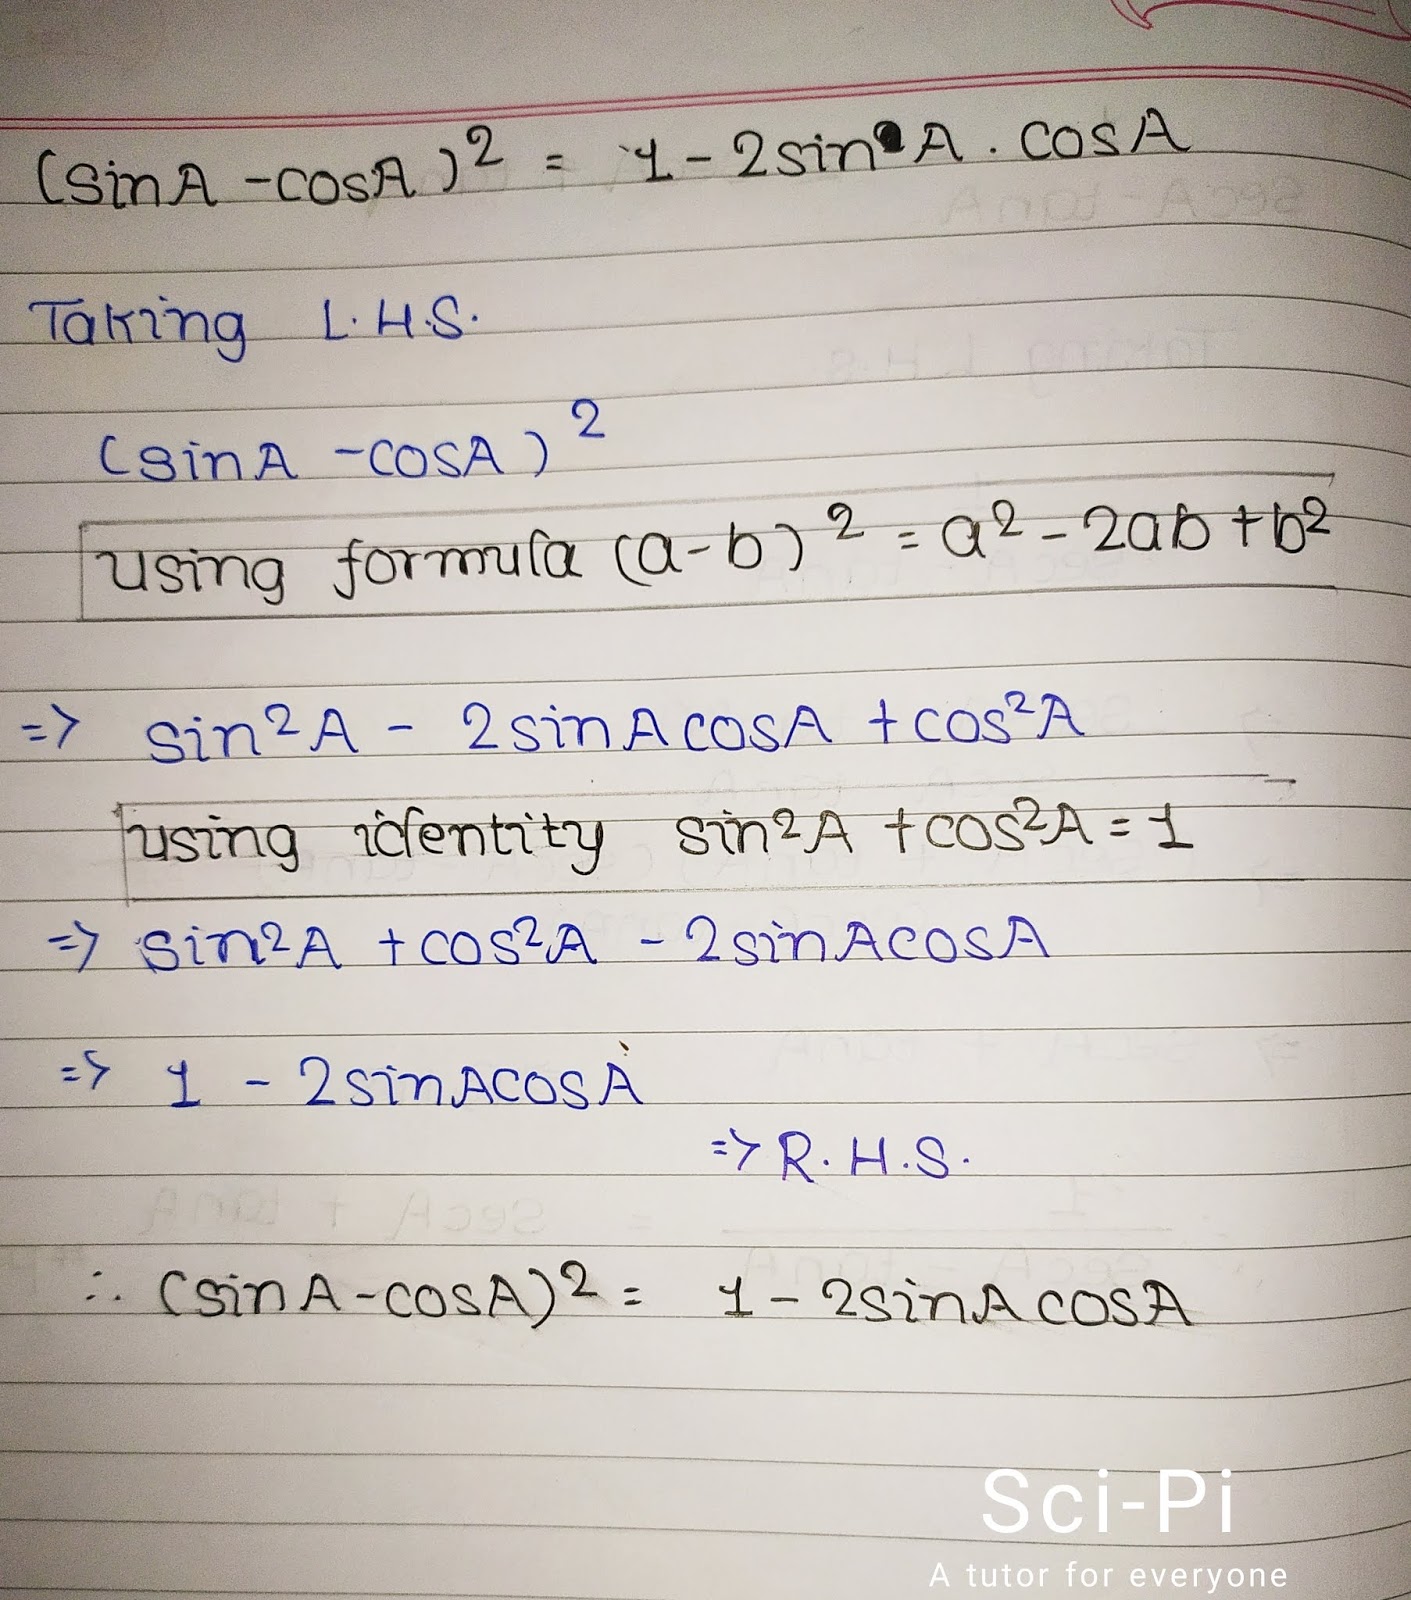 (sinA - cosA)² = 1 - 2sin A . cosA
Taking L.H.S.
(sinA - cosA)²
using formula (a-b)² = a² - 2ab + b²
=> sin²A - 2sinAcosA + cos²A
using identity sin²A + cos²A = 1
=> sin²A + cos²A - 2sinAcosA
=> 1 - 2sinAcosA
=> R.H.S.
∴ (sinA - cosA)² = 1 - 2sinAcosA
Sci-Pi
A tutor for everyone